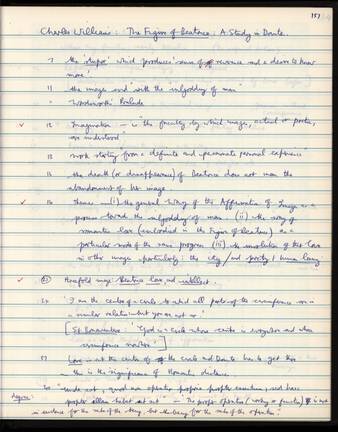 157
Charles Williams: The Figure of Beatrice: A Study in Dante.
7 the 'stupor' which 'produces' sense of reverence and a desire to know
more'
11 the image and with the ingodding of man'
" Wordsworth's Prelude
12 Imagination — is 'the faculty by which images, actual or poetic,
are understood'
13 work starting 'from a definite and passionate personal experience'
15 the death (or disappearance) of Beatrice does not mean the
abandonment of her image.
16 themes — (i) the general Way of the Affirmation of Images as a
process towards the ingodding of man. (ii) the way of
romantic love (embodied in the Figure of Beatrice) as a
particular mode of the same progress (iii) the involution of this love
in other images, particularly: the city and poetry & human learning
Manifold image: Beatrice, Love, and intellect.
24 'I am the centre of a circle to which all parts of the circumference are in
a similar relation: but you are not so.'
[St Bonaventura: 'God is a Circle whose centre is everywhere and whose
circumference nowhere']
Love is at the centre of the circle and Dante has to get there
— this is the significance of Romantic distance.
— The proper operation (working or function) is not
in existence for the sake of the being, but the being for the sake of the operation'